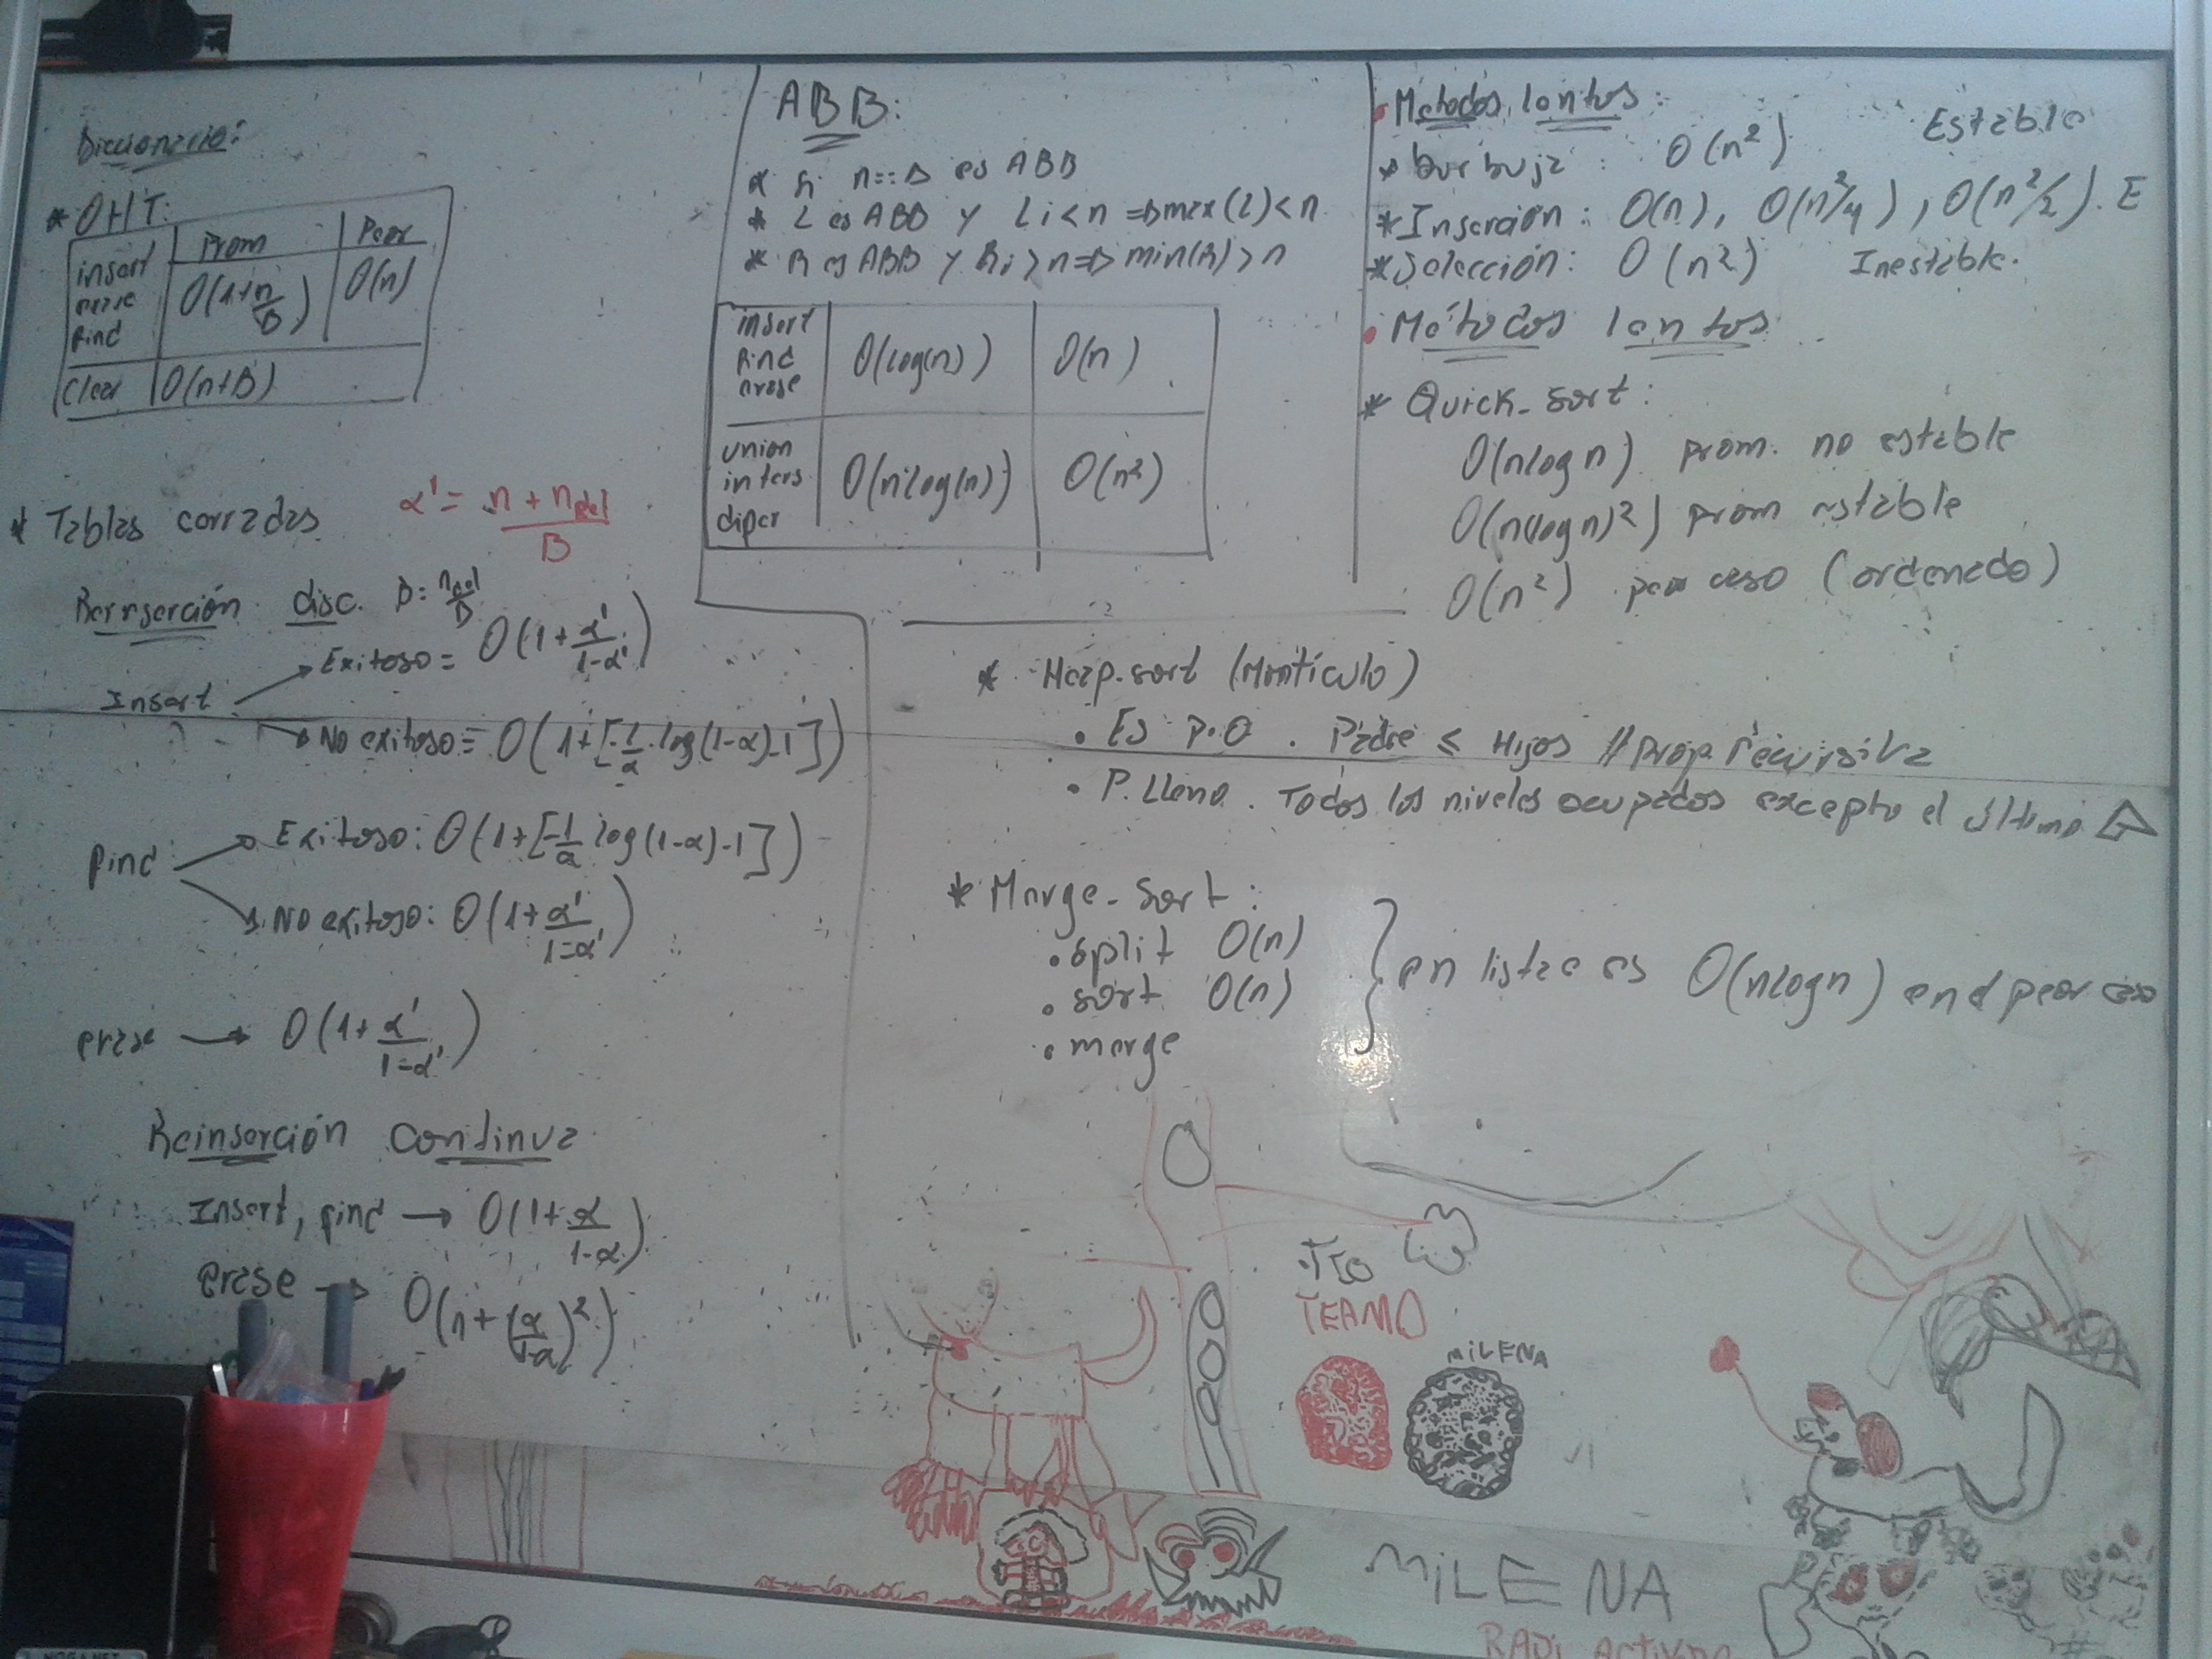 Diccionario:
* OHT:
Prom Peor
insert
erase
find
O(1+n/B) O(n)
clear O(n+B)
* Tablas cerradas α' = n + ndel / B
Reinserción disc. B: ndel/B
Insert
Exitoso = O(1+ α'/1-α')
No exitoso = O(1+[-1/α log(1-α)-1])
find
Exitoso: O(1+[-1/α log(1-α)-1])
No exitoso: O(1+ α'/1-α')
erase → O(1+ α'/1-α')
Reinserción continua
Insert, find → O(1+ α/1-α)
erase → O(n+(α/1-α)²)
ABB:
* Si n==Λ es ABB
* L es ABB y Li<n => max(L)<n
* R es ABB y Ri>n => min(R)>n
insert
find
erase
O(log(n)) O(n)
union
inters
difer
O(n log(n)) O(n²)
• Metodos lentos:
* burbuja: O(n²) Estable
* Inserción: O(n), O(n²/4), O(n²/2). E
* Selección: O(n²) Inestable.
• Métodos lentos
* Quick-sort:
O(nlogn) prom. no estable
O(n(logn)²) prom estable
O(n²) peor caso (ordenado)
* Heap-sort (Montículo)
• Es P.O. Padre ≤ Hijos // Prop. recursiva
• P. Lleno. Todos los niveles ocupados excepto el último
* Merge-sort:
• split O(n)
• sort O(n)
• merge
en listas es O(nlogn) en el peor caso
TIO
TEAMO
MiLENA
MiLENA
RADI ACTIVA